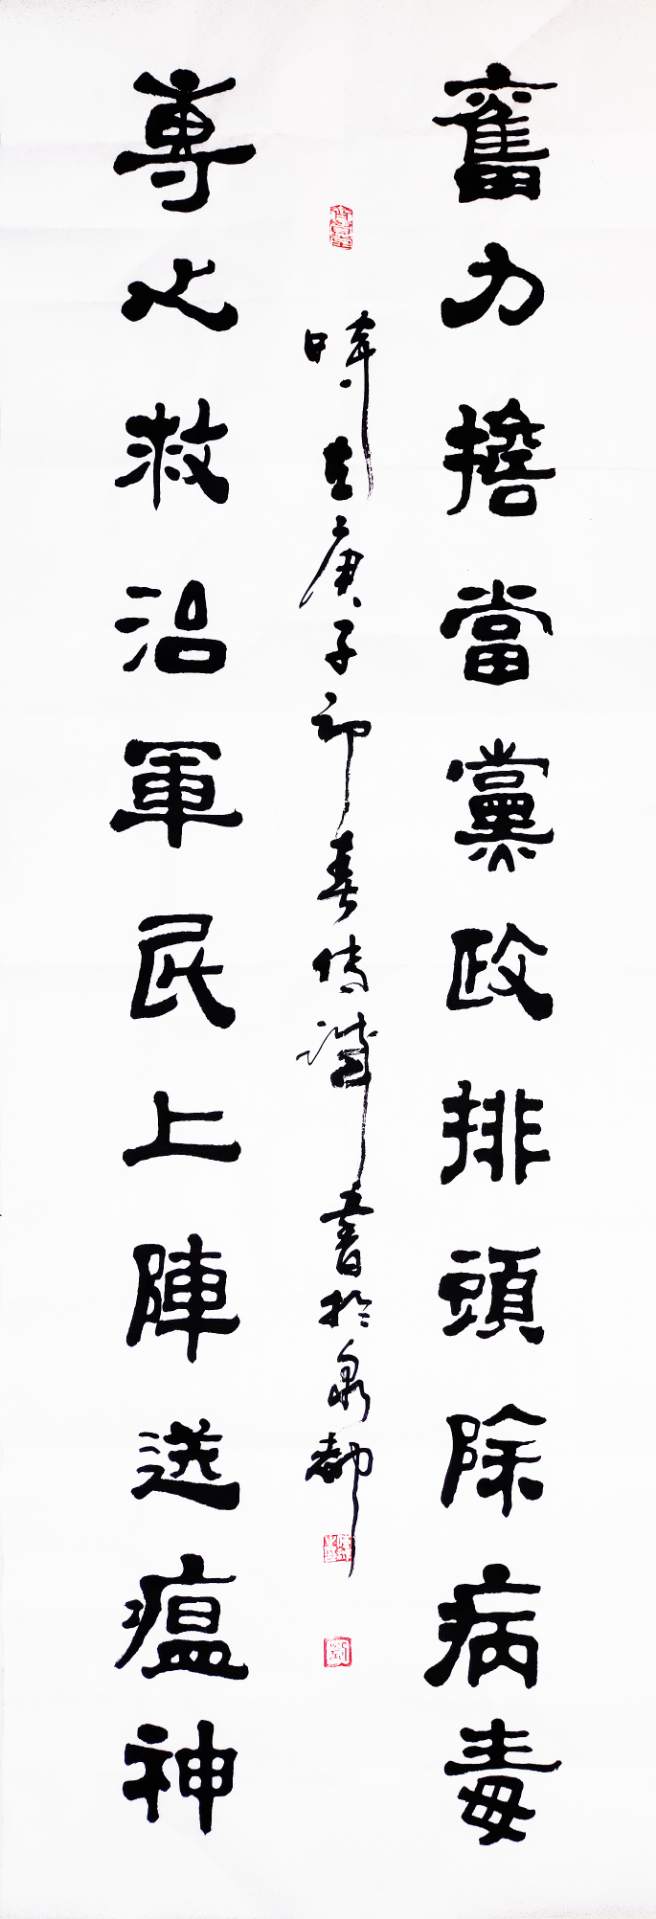 奮力擔當黨政排頭除病毒
專心救治軍民上陣送瘟神
時在庚子初春傳濤書於泉都